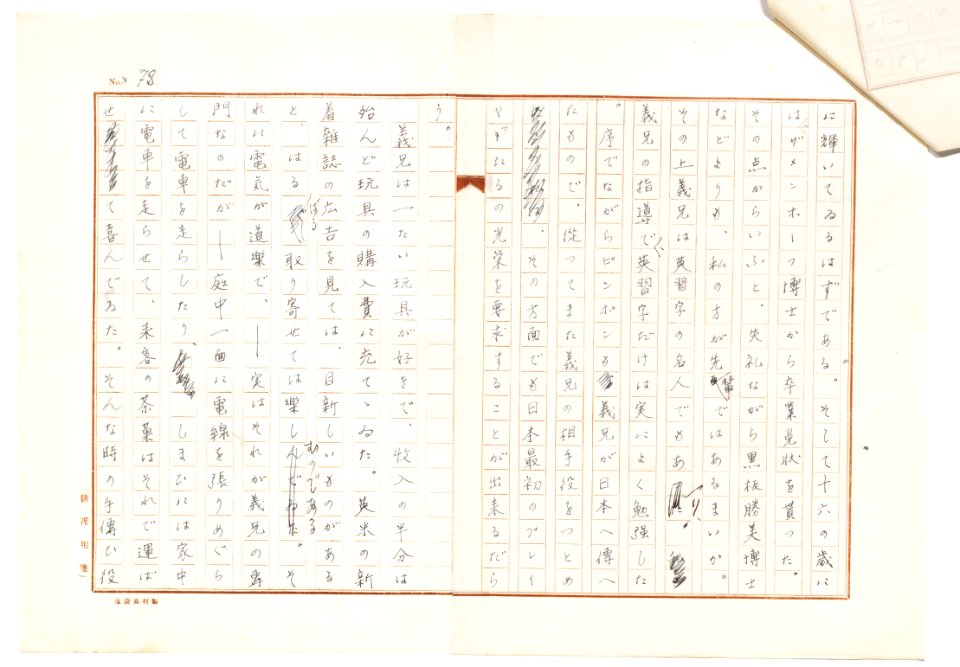 No. 78
に輝いてゐるはずである。そして十六の歳に
は、ザメンホーフ博士から卒業免状を貰つた。
その点からいふと、失礼ながら黒板勝美博士
などよりも、私の方が先輩ではあるまいか。
その上義兄は英習字の名人でもあり、
義兄の指導で、英習字だけは実によく勉強した
。序でながらピンポンも義兄が日本へ傳へ
たもので、従つてまた義兄の相手役をつとめ
、その方面でも日本最初のプレイ
ヤーたるの光栄を要求することが出来るだら
う。
義兄は一たい玩具が好きで、收入の半分は
殆んど玩具の購入費に充てゝゐた。英米の新
着雑誌の広告を見ては、目新しいものがある
と、はるばる取り寄せては樂しむのである。そ
れに電気が道樂で、――実はそれが義兄の専
門なのだが――庭中一面に電線を張りめぐら
して電車を走らしたり、しまひには家中
に電車を走らせて、来客の茶菓はそれで運ば
せて喜んでゐた。そんな時の手傳ひ役